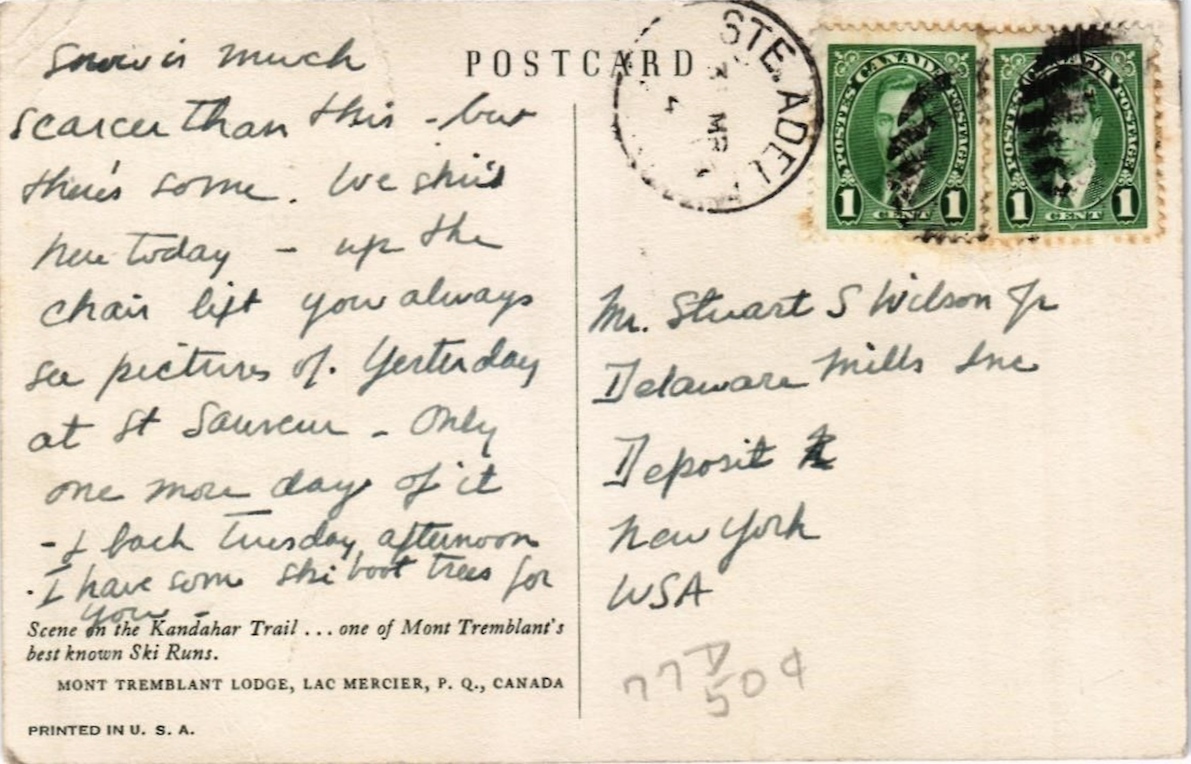 Snow is much
scarcer than this - but
there's some. We ski'd
here today - up the
chair lift you always
see pictures of. Yesterday
at St Sauveur - Only
one more day of it
- & back Tuesday afternoon
. I have some ski boot trees for
you -
Scene on the Kandahar Trail ... one of Mont Tremblant's
best known Ski Runs.
MONT TREMBLANT LODGE, LAC MERCIER, P. Q., CANADA
PRINTED IN U. S. A.
POSTCARD
STE. ADEL
MR
4
POSTES CANADA POSTAGE
1 CENT 1
POSTES CANADA POSTAGE
1 CENT 1
Mr. Stuart S Wilson Jr
Delaware Mills Inc
Deposit
New York
USA
77D
504